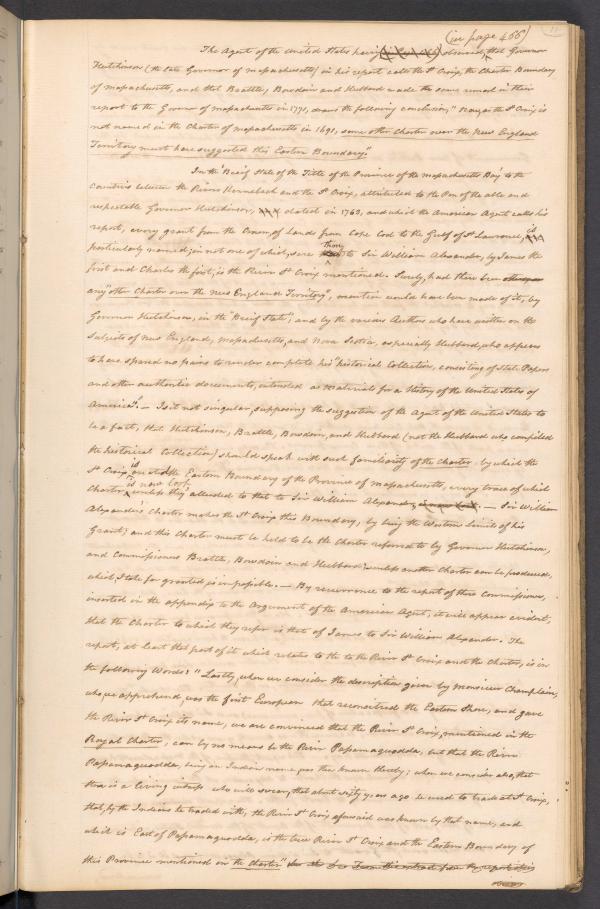 (in page 466)
The Agent of the United States having observed, that Governor
Hutchinson (the late Governor of Massachusetts) in his report calls the St Croix, the Charter Boundary
of Massachusetts, and that Brattle, Bowdoin and Hubbard made the same remark in their
report to the Govenor of Massachusetts in 1771, draws the following conclusion, "As the St Croix is
not named in the Charter of Massachusetts in 1691, some other Charter over the New England
Territory must have suggested this Eastern Boundary".
In the "Breif State of the Title of the Province of the Massachusetts Bay to the
Countries between the Rivers Kennebeck and the St Croix, attributed to the Pen of the able and
respectable Governor Hutchinson, dated in 1763, and which the American Agent calls his
report, every grant from the Crown, of Lands from Cape Cod to the Gulf of St Lawrence, is
particularly named; in not one of which, save those to Sir William Alexander, by James the
first and Charles the first, is the River St Croix mentioned. Surely, had there been
any "other Charter over the New England Territory", mention would have been made of it, by
Governor Hutchinson, in the "Breif State"; and by the various Authors who have written on the
Subjects of New England, Massachusetts, and Nova Scotia, especially Hubbard, who appears
to have spared no pains to render complete his "historical Collection, consisting of State Papers
and other authentic documents, intended as materials for a History of the United States of
America". — Is it not singular, supposing the suggestion of the Agent of the United States to
be a fact, that Hutchinson, Brattle, Bowdoin, and Hubbard (not the Hubbard who compiled
the historical Collection) should speak with such familiarity of the Charter, by which the
St Croix is the Eastern Boundary of the Province of Massachusetts, every trace of which
Charter is now lost, unless they alluded to that to Sir William Alexander. — Sir William
Alexander's Charter makes the St Croix this Boundary, by being the Western Limits of his
Grant; and this Charter must be held to be the Charter referred to by Governor Hutchinson,
and Commissioners Brattle, Bowdoin and Hubbard; unless another Charter can be produced,
which, I take for granted is impossible. — By recurrence to the report of these Commissioners,
inserted in the appendix to the Argument of the American Agent, it will appear evident,
that the Charter to which they refer is that of James to Sir William Alexander. The
report, at least that part of it which relates to the to the River St Croix and the Charter, is in
the following Words: "Lastly, when we consider the description given by Monsieur Champlain,
who we apprehend, was the first European that reconoitred the Eastern Shore, and gave
the River St Croix its name, we are convinced that the River St Croix, mentioned in the
Royal Charter, can by no means be the River Passamaquodda, but that the River
Passamaquodda, being an Indian name was then known thereby; when we consider also, that
there is a living witness who will swear, that about sixty years ago he used to trade at St Croix,
that, by the Indians he traded with, the River St Croix aforesaid was known by that name, and
which is East of Passamaquodda, is the true River St Croix and the Eastern Boundary of
this Province mentioned in the Charter"